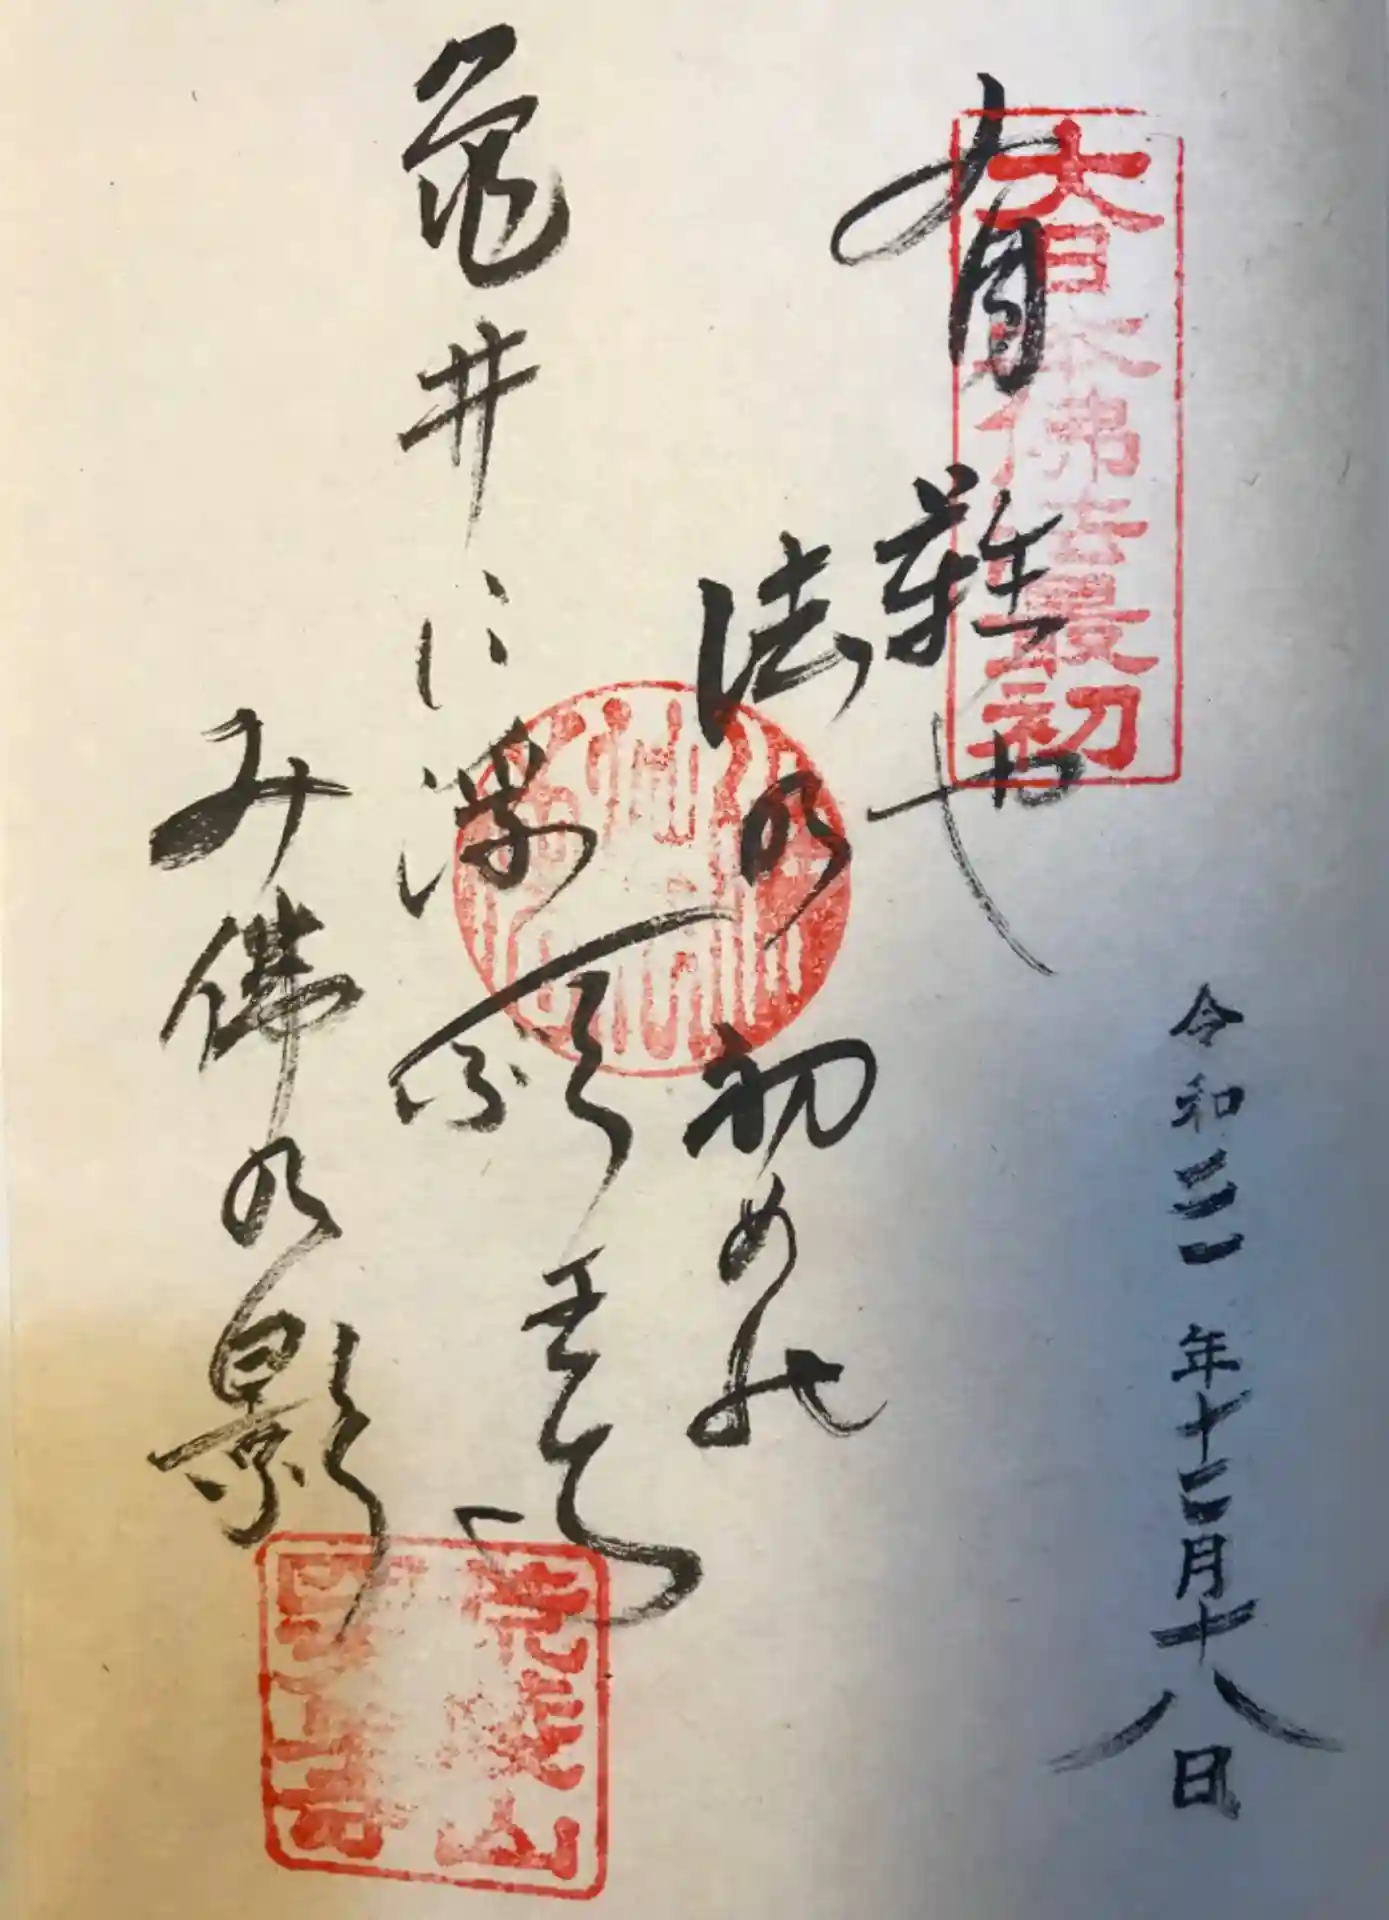 令和三年十二月十八日
大日本佛法最初
有難や
法の初めの
亀井に浮
み佛の影
荒陵山
四天王寺